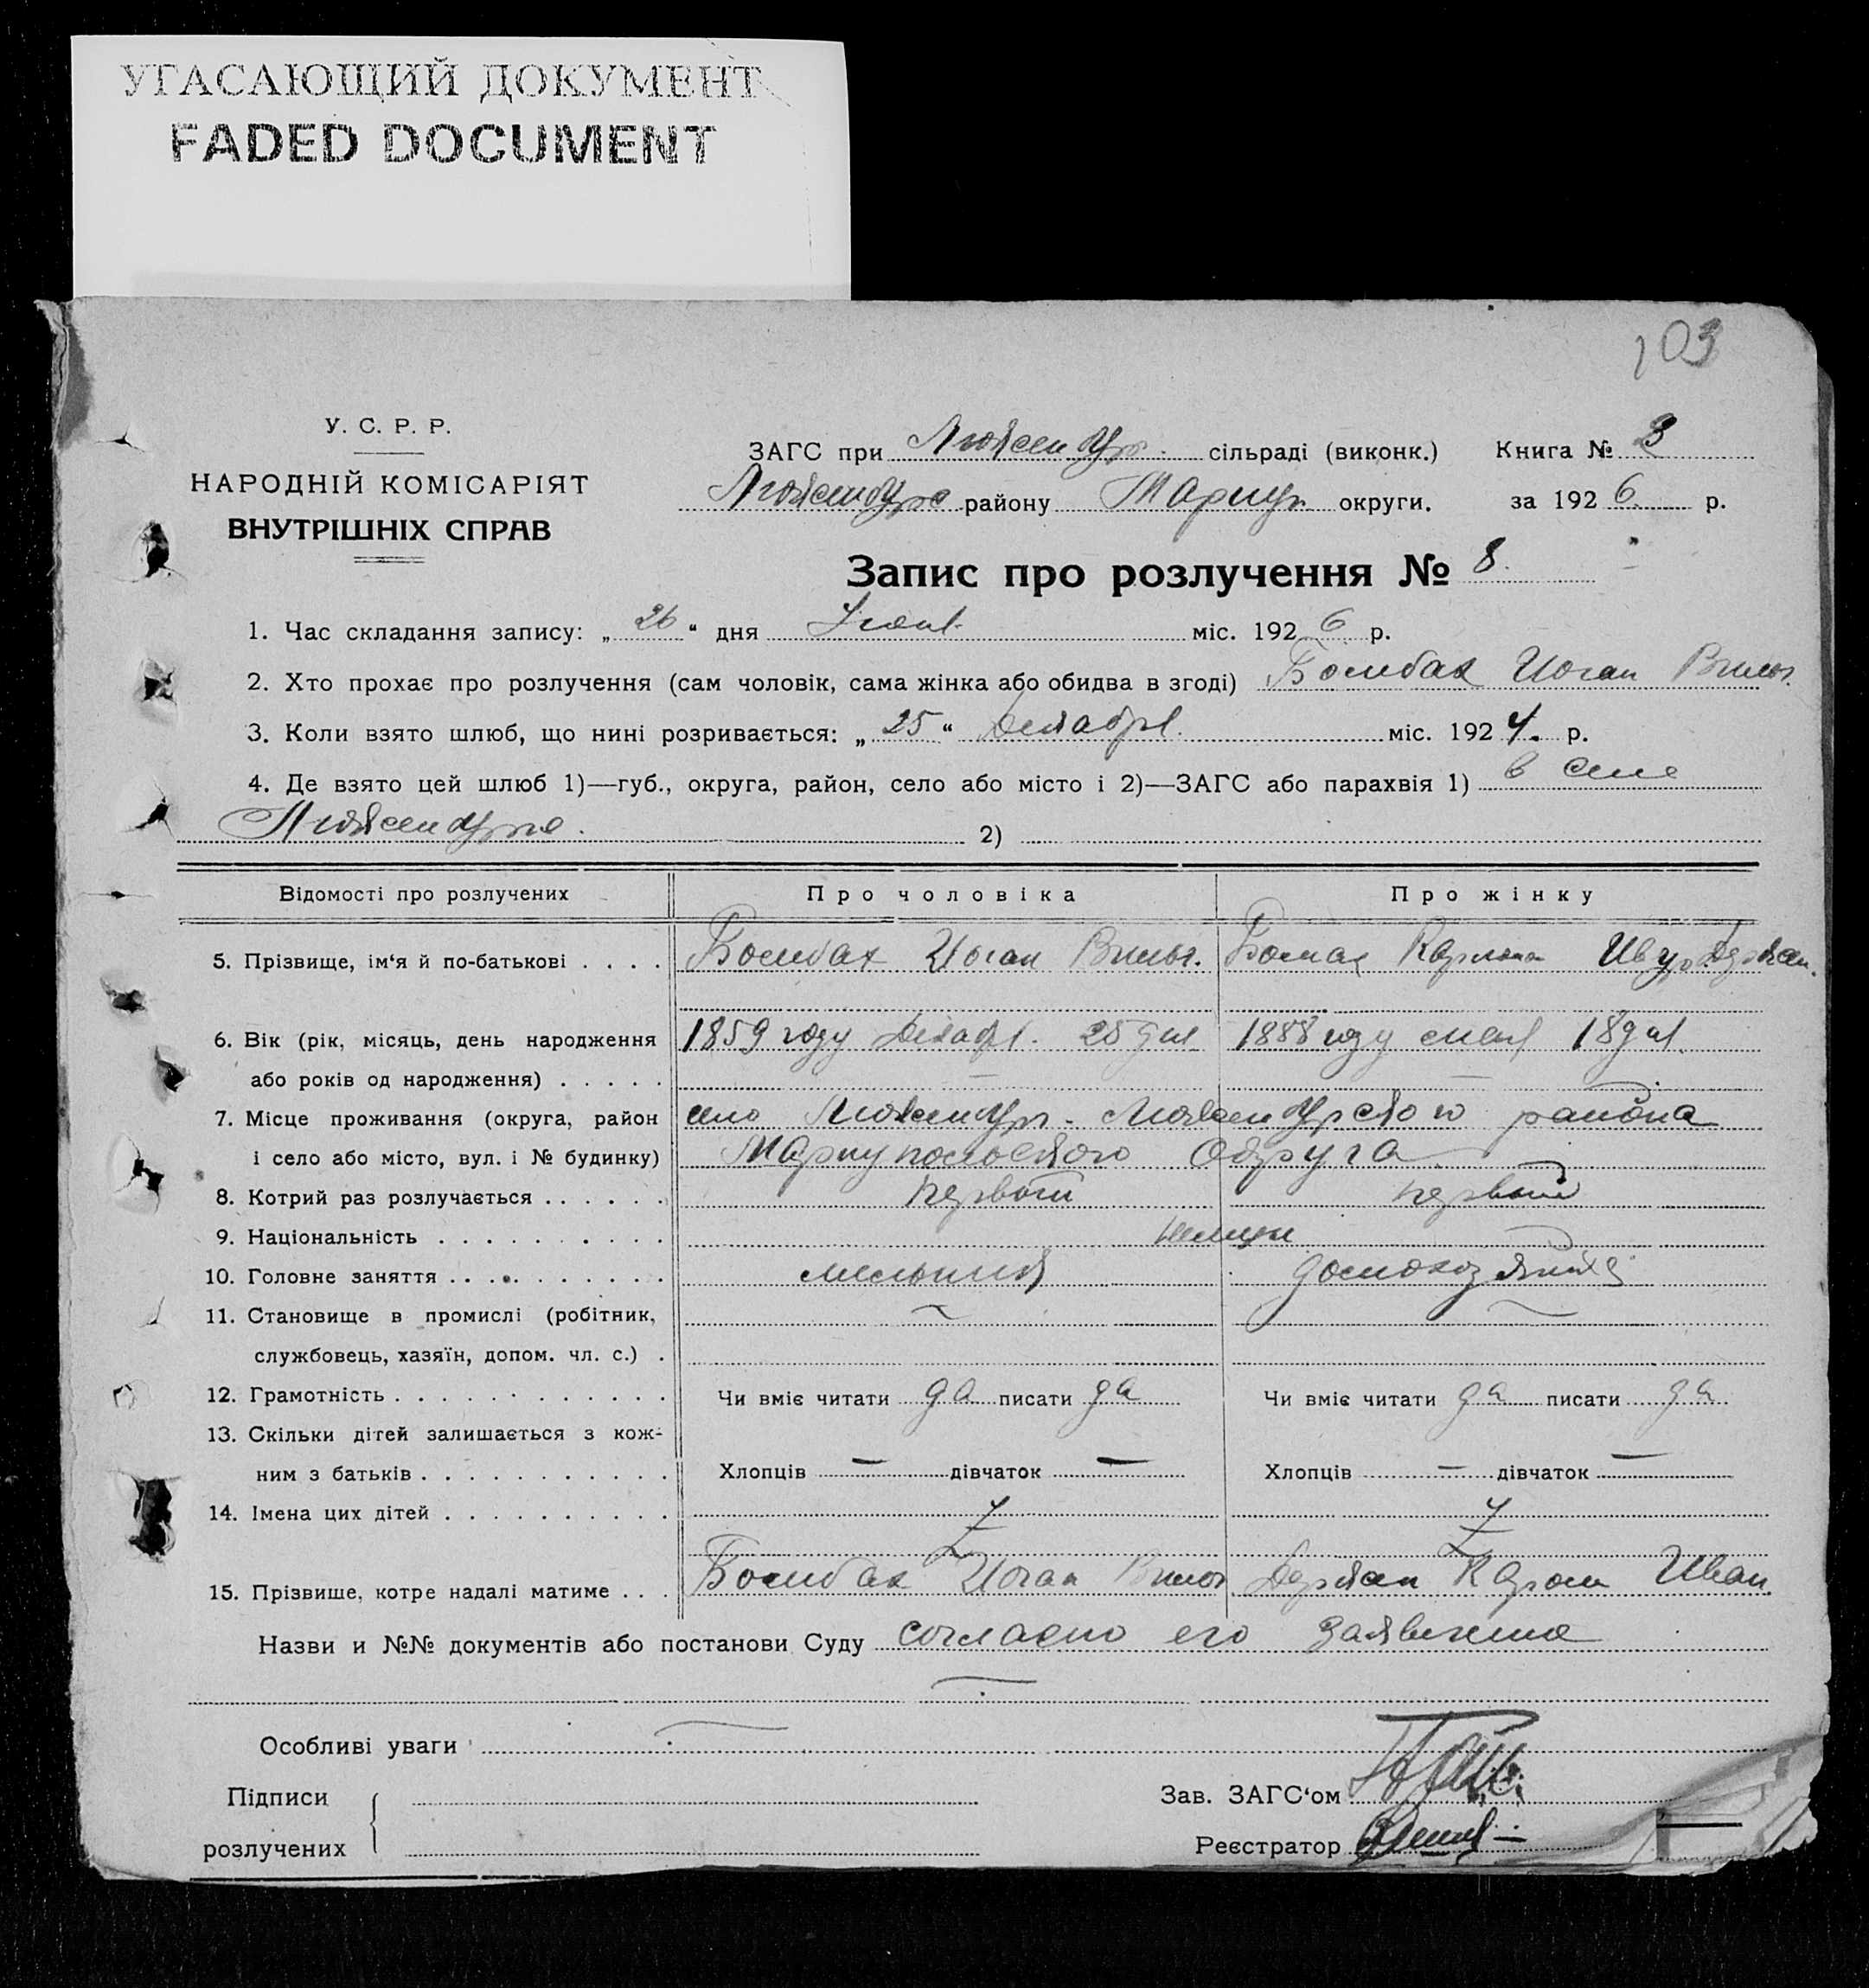 УГАСАЮЩИЙ ДОКУМЕНТ
FADED DOCUMENT
103
У. С. Р. Р.
НАРОДНІЙ КОМІСАРІЯТ
ВНУТРІШНІХ СПРАВ
ЗАГС при Люксембург. сільраді (виконк.) Книга № 3
району Мариуп. округи. за 1926 р.
Запис про розлучення № 8.
1. Час складання запису: „ 26 “ дня міс. 1926 р.
2. Хто прохає про розлучення (сам чоловік, сама жінка або обидва в згоді) Бомбах Иоган Вильг.
3. Коли взято шлюб, що нині розривається: „ 25 “ Декабря. міс. 1924. р.
4. Де взято цей шлюб 1)—губ., округа, район, село або місто і 2)—ЗАГС або парахвія 1) в селе
2)
Відомості про розлучених Про чоловіка Про жінку
5. Прізвище, ім‘я й по-батькові . . . . Бомбах Иоган Вильг.
6. Вік (рік, місяць, день народження 1859 году Декабр. 25 дня 1888 году мая 18 дня.
або років од народження) . . . . .
7. Місце проживання (округа, район село Люксембург. Люксембургского района
і село або місто, вул. і № будинку) Мариупольского Округа
8. Котрий раз розлучається . . . . . . первый первый
9. Національність . . . . . . . . . . немцы
10. Головне заняття . . . . . . . . . . мельник домохозяйка
11. Становище в промислі (робітник,
службовець, хазяїн, допом. чл. с.) .
12. Грамотність . . . . . . . . . . . . Чи вміє читати да писати да Чи вміє читати да писати да
13. Скільки дітей залишається з кож-
ним з батьків . . . . . . . . . . . Хлопців — дівчаток — Хлопців — дівчаток —
14. Імена цих дітей . . . . . . . . . .
15. Прізвище, котре надалі матиме . . . Бомбах Иоган Вильг. Иван.
Назви и №№ документів або постанови Суду согласно его заявления
Особливі уваги
Підписи
розлучених
Зав. ЗАГС‘ом
Реєстратор